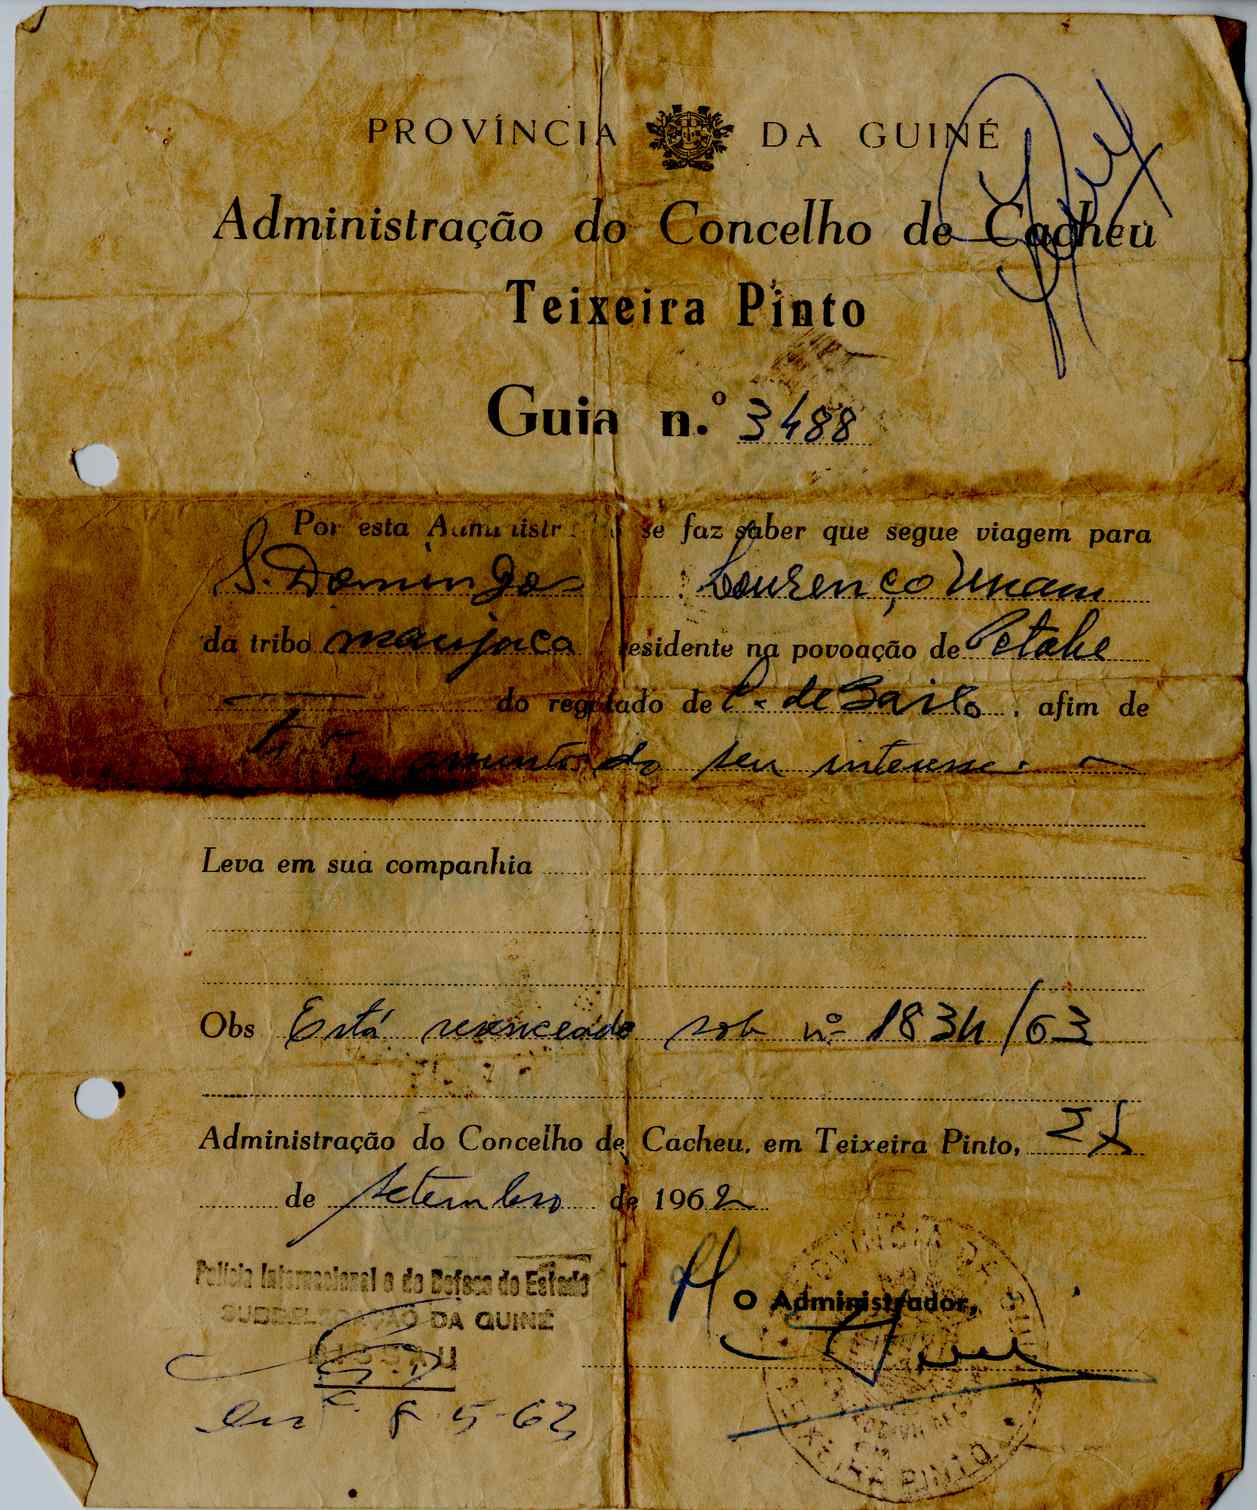 PROVÍNCIA DA GUINÉ
Administração do Concelho de Cacheu
Teixeira Pinto
Guia n.º 3488
Por esta Administr se faz saber que segue viagem para
S. Domingos Lourenço
da tribo manjaca residente na povoação de Petabe
do regulado de C. de Baixo, afim de
assunto do seu interesse.
Leva em sua companhia
Obs Está recenceado sob nº 1834/63
Administração do Concelho de Cacheu, em Teixeira Pinto,
de Setembro de 1962
Polícia Internacional e de Defesa do Estado
SUBDELEGAÇÃO DA GUINÉ
BISSAU
O Administrador,
PROVINCIA DE GUI
TEIXEIRA PINTO
Em 8-5-63